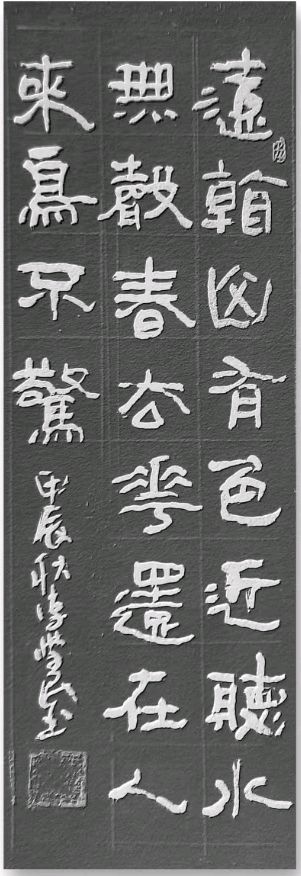 遠看山有色近聽水
無聲春去花還在人
來鳥不驚 甲辰秋